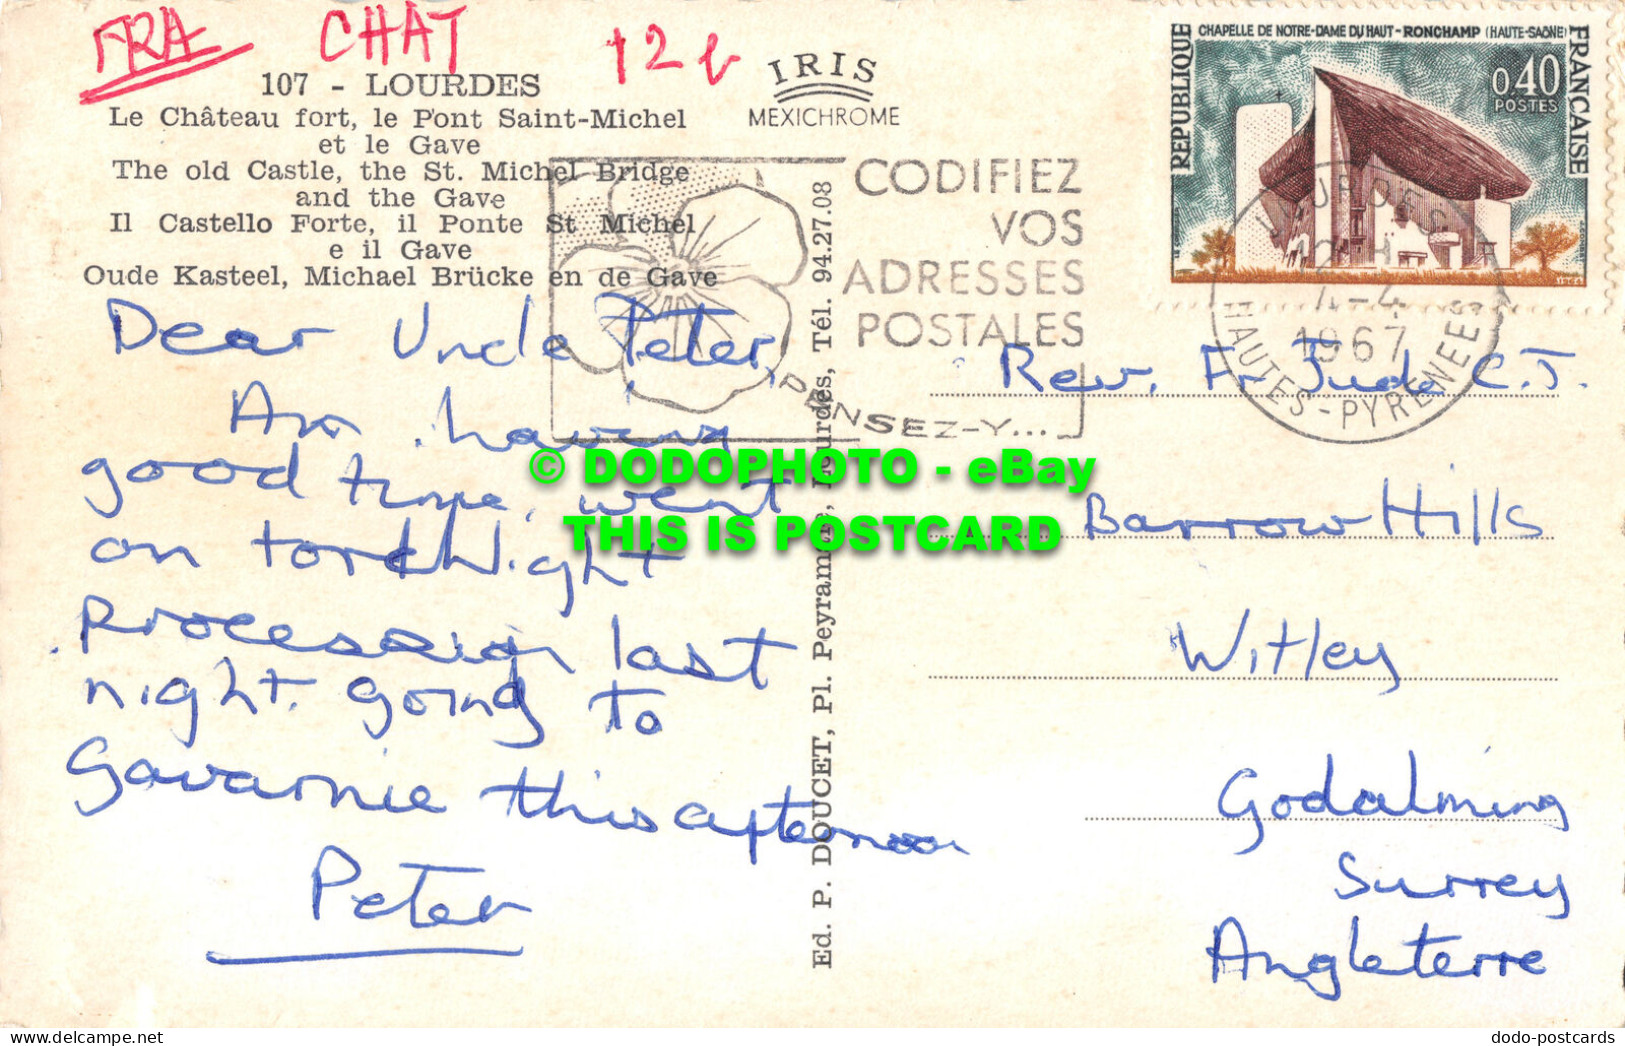 FRA CHAT 12
107 - LOURDES
Le Château fort, le Pont Saint-Michel
et le Gave
The old Castle, the St. Michel Bridge
and the Gave
Il Castello Forte, il Ponte St Michel
e il Gave
Oude Kasteel, Michael Brücke en de Gave
IRIS
MEXICHROME
CODIFIEZ
VOS
ADRESSES
POSTALES
PENSEZ-Y...
CHAPELLE DE NOTRE-DAME DU HAUT - RONCHAMP (HAUTE-SAÔNE)
REPUBLIQUE
FRANCAISE
0,40
POSTES
1964
LOURDES
1967
HAUTES-PYRENEES
Dear Uncle Peter,
Am having
good time, went
on torchlight
procession last
night. going to
Gavarnie this afternoon
Peter
Ed. P. DOUCET, Pl. Peyramale, Lourdes, Tél. 94.27.08
Rev. Fr Jude C.J.
Barrow Hills
Witley
Godalming
Surrey
Angleterre
© DODOPHOTO - eBay
THIS IS POSTCARD
dodo-postcards